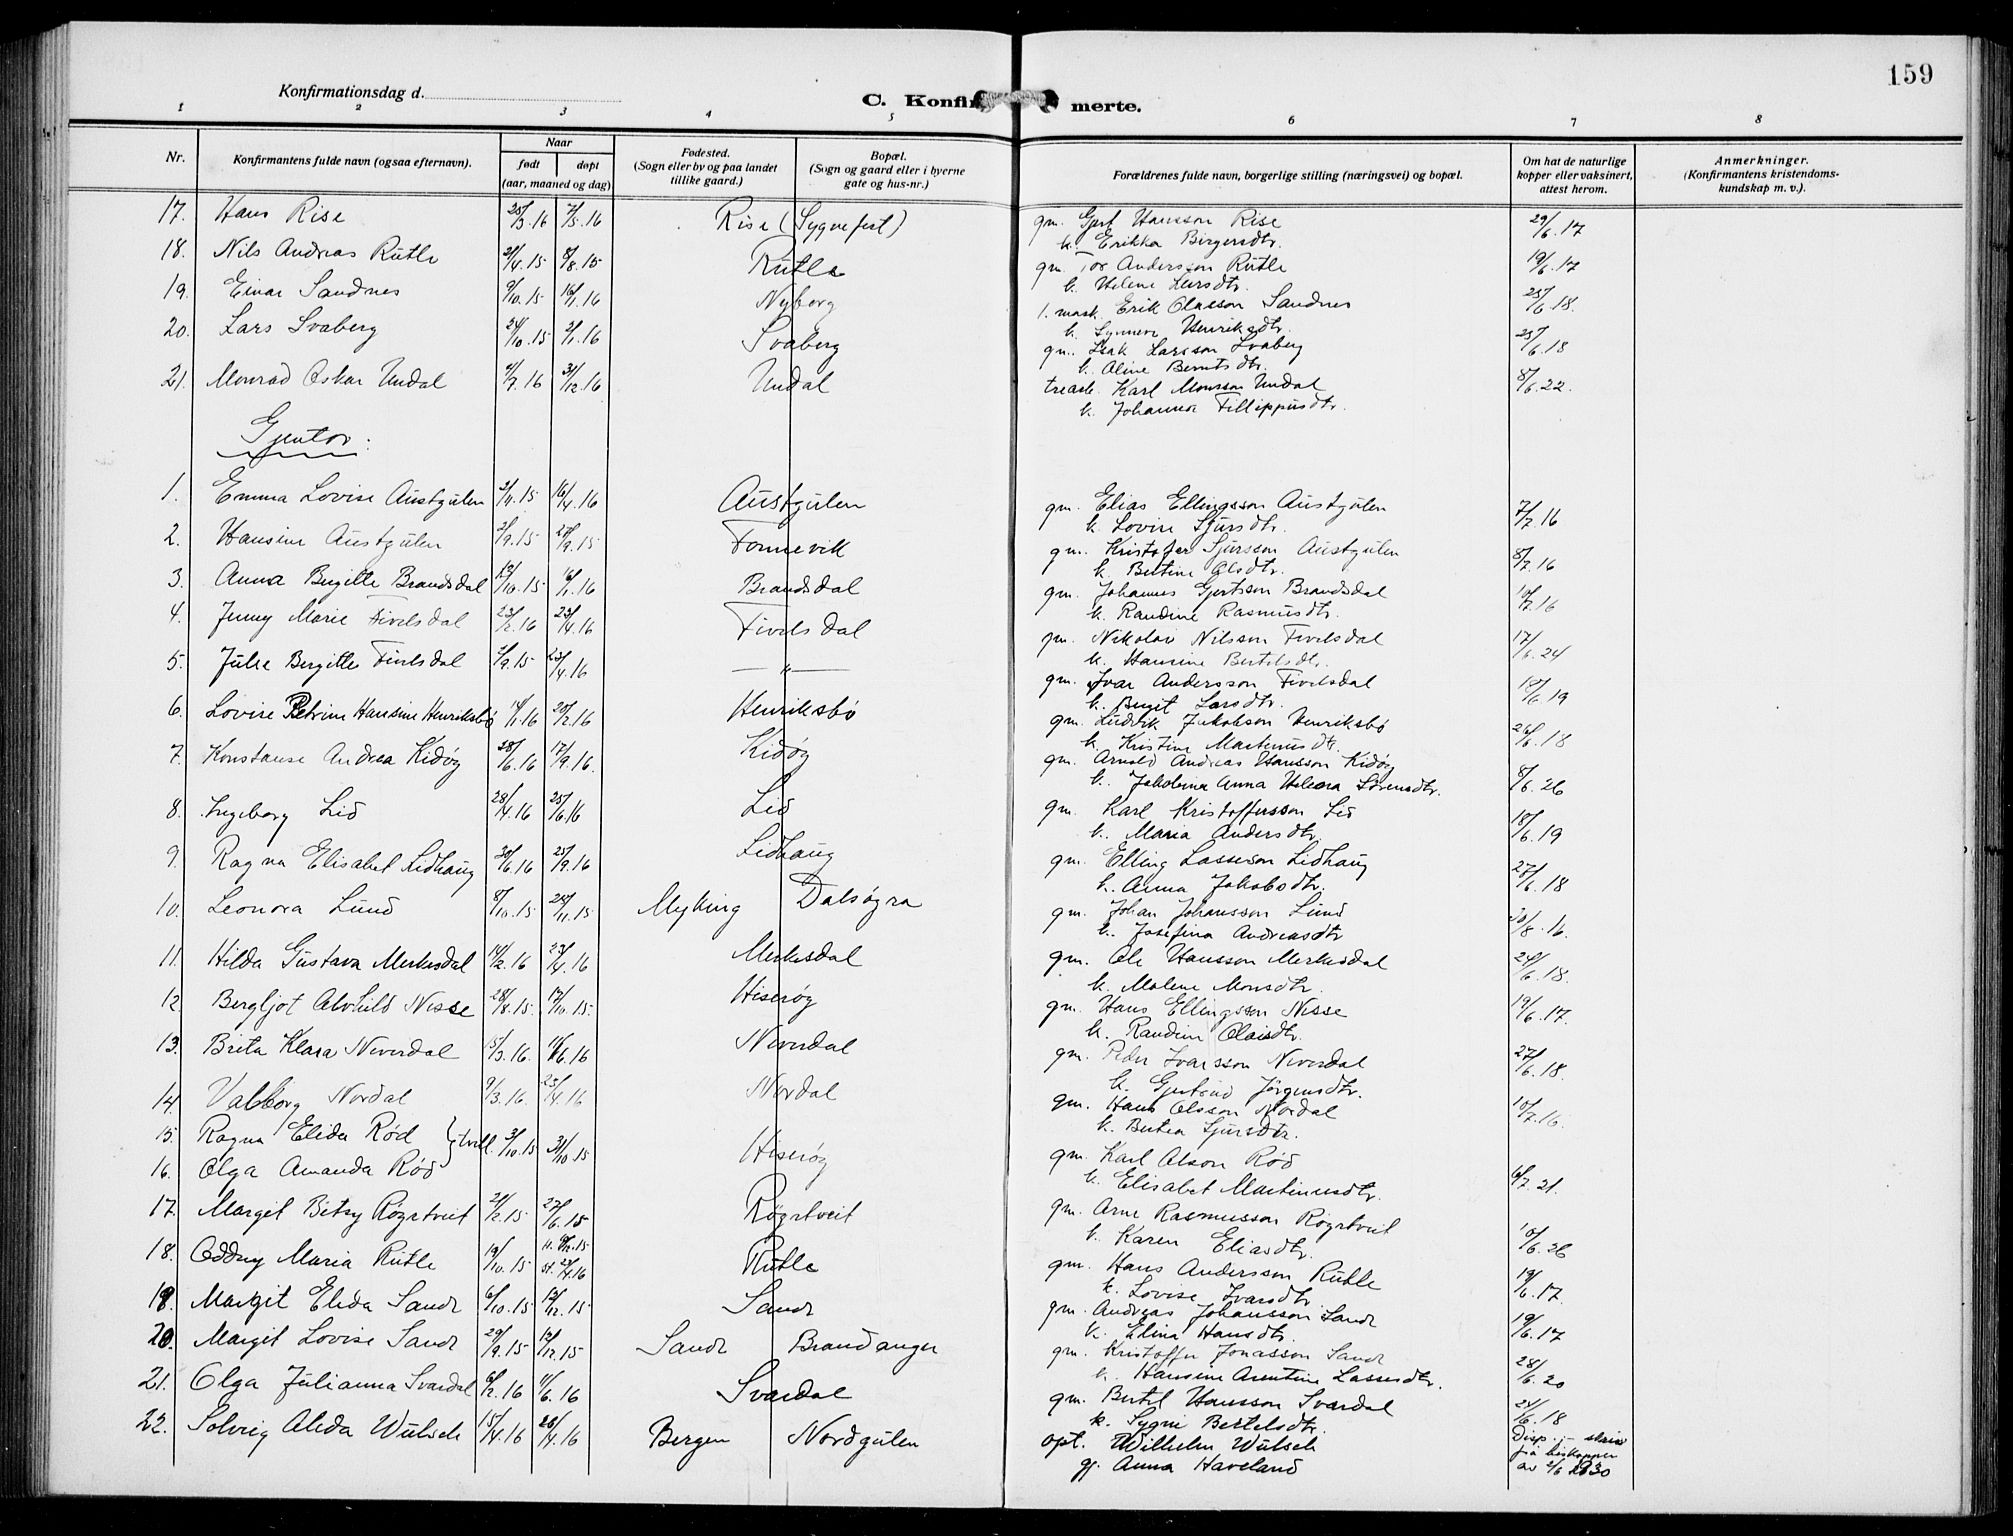 159
Konfirmationsdag d.
C. Konfir merte.
1 2 3 4 5 6 7 8
Nr. Konfirmantens fulde navn (ogsaa efternavn). Naar født døpt (aar, maaned og dag) Fødested. (Sogn eller by og paa landet tillike gaard.) Bopæl. (Sogn og gaard eller i byerne gate og hus-nr.) Forældrenes fulde navn, borgerlige stilling (næringsvei) og bopæl. Om hat de naturlige kopper eller vaksinert, attest herom. Anmerkninger. (Konfirmantens kristendomskundskap m. v.).
17. Hans Rise 25/3.16 7/5.16 Rise (Sygnefest) gm. Gjert Hansson Rise 29/6.17
k. Erikka Birgersdtr.
18. Nils Andreas Rutle 21/4.15 8/8.15 Rutle gm. Tor Andersson Rutle 19/6.17
k. Helene Larsdtr.
19. Einar Sandnes 9/10.15 16/1.16 Nyborg 1. mask. Erik Olasson Sandnes 25/6.18.
k. Synneve Henriksdtr.
20. Lars Svaberg 24/10.15 2/1.16 Svaberg gm. Isak Larsson Svaberg 25/6.18
k. Aline Berntsdtr.
21. Monrad Oskar Undal 4/7.16 31/12.16 Undal treask. Karl Monsson Undal 8/6.22.
k. Johanna Fillippusdtr.
Gjentor.
1. Emma Lovise Austgulen 3/4.15 16/4.16 Austgulen gm. Elias Ellingsson Austgulen 7/7.16
k. Lovise Sjursdtr.
2. Hansine Austgulen 2/9.15 27/9.15 Fonnevik gm. Kristofer Sjursson Austgulen 8/7.16
k. Bertine Olsdtr.
3. Anna Birgitte Brandsdal 12/10.15 16/1.16 Brandsdal gm. Johannes Gjertsson Brandsdal 10/7.16
k. Randine Rasmusdtr.
4. Jenny Marie Fivelsdal 23/2.16 23/4.16 Fivelsdal gm. Nikolai Nilsson Fivelsdal 17/6.24
k. Hansine Bertelsdtr.
5. Julie Bergitte Fivelsdal 4/9.15 23/4.16 — " — gm. Ivar Andersson Fivelsdal 18/6.19
k. Berit Larsdtr.
6. Lovise Petrine Hansine Henriksbø 14/1.16 20/2.16 Henriksbø gm. Ludvik Jakobson Henriksbø 26/6.18
k. Kristine Martinusdtr.
7. Konstanse Andrea Kidøy 28/6.16 17/9.16. Kidøy gm. Arnold Andreas Hansson Kidøy 8/6.26
k. Jakobina Anna Helena Sörensdtr.
8. Ingeborg Lid 28/4.16 25/6.16 Lid gm. Karl Kristoffersson Lid 18/6.19
k. Maria Andersdtr.
9. Ragna Elisabet Lidhaug 30/6.16 25/9.16 Lidhaug gm. Elling Lasseson Lidhaug 27/6.18
k. Anna Jakobsdtr.
10. Leonora Lund 8/10.15 28/11.15 Myking Dalsøyra gm. Johan Johansson Lund 30/8.16.
k. Josefina Andreasdtr
11. Hilda Gustava Merkesdal 14/2.16 23/4.16 Merkesdal gm. Ole Hansson Merkesdal 24/6.18.
k. Malene Monsdtr.
12. Bergljot Alvhild Nisse 28/8.15. 17/10.15. Hiserøy gm. Hans Ellingsson Nisse 19/6.17.
k. Randine Olaisdtr.
13. Brita Klara Neverdal 15/3.16. 11/6.16 Neverdal gm. Peder Ivarsson Neverdal 27/6.18.
k. Gjertrud Jörgensdtr.
14. Valborg Nordal 9/3.16. 23/4.16 Nordal gm. Hans Olsson Nordal 10/7.16.
k. Bertea Sjursdtr.
15. Ragna Elida Rød }tvill. 3/10.15 31/10.15 Hiserøy gm. Karl Olson Rød
16. Olga Amanda Rød k. Elisabet Martinusdtr. 6/7.21.
17. Margit Betsy Röyrtveit 21/2.15 27/6.15 Röyrtveit gm. Arne Rasmusson Röyrtveit 10/6.26
k. Karen Eliasdtr.
18. Oddny Maria Rutle 19/10.15 H. 9/12.15 st. 24/4.16 Rutle gm. Hans Andersson Rutle 19/6.17.
k. Lovise Ivarsdtr
19. Margit Elida Sande 6/10.15 12/12.15 Sande gm. Andreas Johansson Sande 19/6.17
k. Elina Hansdtr.
20. Margit Lovise Sande 29/9.15 12/12.15 Sande Brandanger gm. Kristoffer Jonasson Sande 28/6.20
k. Hansine Arentine Lassesdtr.
21. Olga Julianna Svardal 6/2.16 11/6.16 Svardal gm. Bertel Hansson Svardal 24/6.18
k. Sygni Bertelsdtr.
22. Solveig Alida Wülsch 15/4.16 20/4.16 Bergen Nordgulen opt. Wilhelm Wülsch Disp. - skriv
g. Anna Haveland frå biskopen
av 2/6 1930